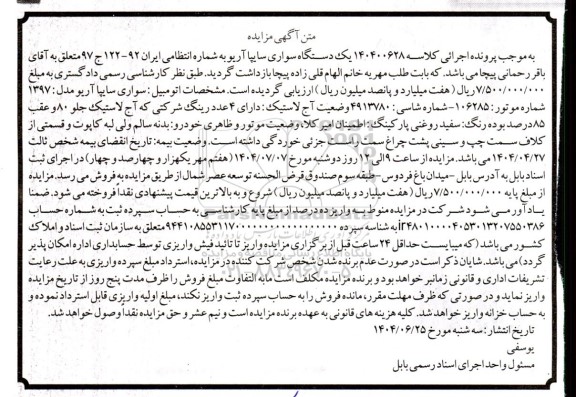 متن آگهی مزایده
به موجب پرونده اجرائی کلاسه ۱۴۰۴۰۰۶۲۸ یک دستگاه سواری سایپا آریو به شماره انتظامی ایران ۹۲-۱۲۲ ج ۹۷ متعلق به آقای
باقر رحمانی پیچا می باشد. که بابت طلب مهریه خانم الهام قلی زاده پیچا بازداشت گردید. طبق نظر کارشناسی رسمی دادگستری به مبلغ
۷/۵۰۰/۰۰۰/۰۰۰ ریال (هفت میلیارد و پانصد میلیون ریال) ارزیابی گردیده است. مشخصات اتومبیل: سواری سایپا آریو مدل: ۱۳۹۷
شماره موتور: ۱۰۶۲۸۵- شماره شاسی: ۴۹۱۳۷۸۰ وضعیت آج لاستیک: دارای ۴ عدد رینگ شرکتی که آج لاستیک جلو ۸۰ و عقب
۸۵ درصد بوده رنگ: سفید روغنی پارکینگ: اطمینان امیرکلا، وضعیت موتور و ظاهری خودرو: بدنه سالم ولی لبه کاپوت و قسمتی از
کلاف سمت چپ و سینی پشت چراغ سمت راست جزئی خوردگی داشته است. وضعیت بیمه: تاریخ انقضای بیمه شخص ثالث
۱۴۰۴/۰۴/۲۷ می باشد. مزایده از ساعت ۹ الی ۱۲ روز دوشنبه مورخ ۱۴۰۴/۰۷/۰۷ (هفتم مهر یکهزار و چهارصد و چهار) در اجرای ثبت
اسناد بابل به آدرس بابل -میدان باغ فردوس- طبقه سوم صندوق قرض الحسنه توسعه عصر شمال از طریق مزایده به فروش می رسد. مزایده
از مبلغ پایه ۷/۵۰۰/۰۰۰/۰۰۰ ریال (هفت میلیارد و پانصد میلیون ریال) شروع و به بالاترین قیمت پیشنهادی نقدا فروخته می شود. ضمنا
یادآور می شود شرکت در مزایده منوط به واریز ده درصد از مبلغ پایه کارشناسی به حساب سپرده ثبت به شماره حساب
ir۴۸۰۱۰۰۰۰۴۰۵۳۰۱۳۲۰۷۵۵۰۳۸۶ به شناسه سپرده متعلق به سازمان ثبت اسناد و املاک
کشور می باشد (که میبایست حداقل ۲۴ ساعت قبل از برگزاری مزایده واریز تا تائید فیش واریزی توسط حسابداری اداره امکان پذیر
گردد) می باشد. شایان ذکر است در صورت عدم برنده شدن شخص شرکت کننده در مزایده، استرداد مبلغ سپرده واریزی به علت رعایت
تشریفات اداری و قانونی زمانبر خواهد بود و برنده مزایده مکلف است مابه التفاوت مبلغ فروش را ظرف مدت پنج روز از تاریخ مزایده
واریز نماید و در صورتی که ظرف مهلت مقرر، مانده فروش را به حساب سپرده ثبت واریز نکند، مبلغ اولیه واریزی قابل استرداد نموده و
به حساب خزانه واریز خواهد شد. کلیه هزینه های قانونی به عهده برنده مزایده است و نیم عشر و حق مزایده نقدا وصول خواهد شد.
تاریخ انتشار: سه شنبه مورخ ۱۴۰۴/۰۶/۲۵
یوسفی
مسئول واحد اجرای اسناد رسمی بابل